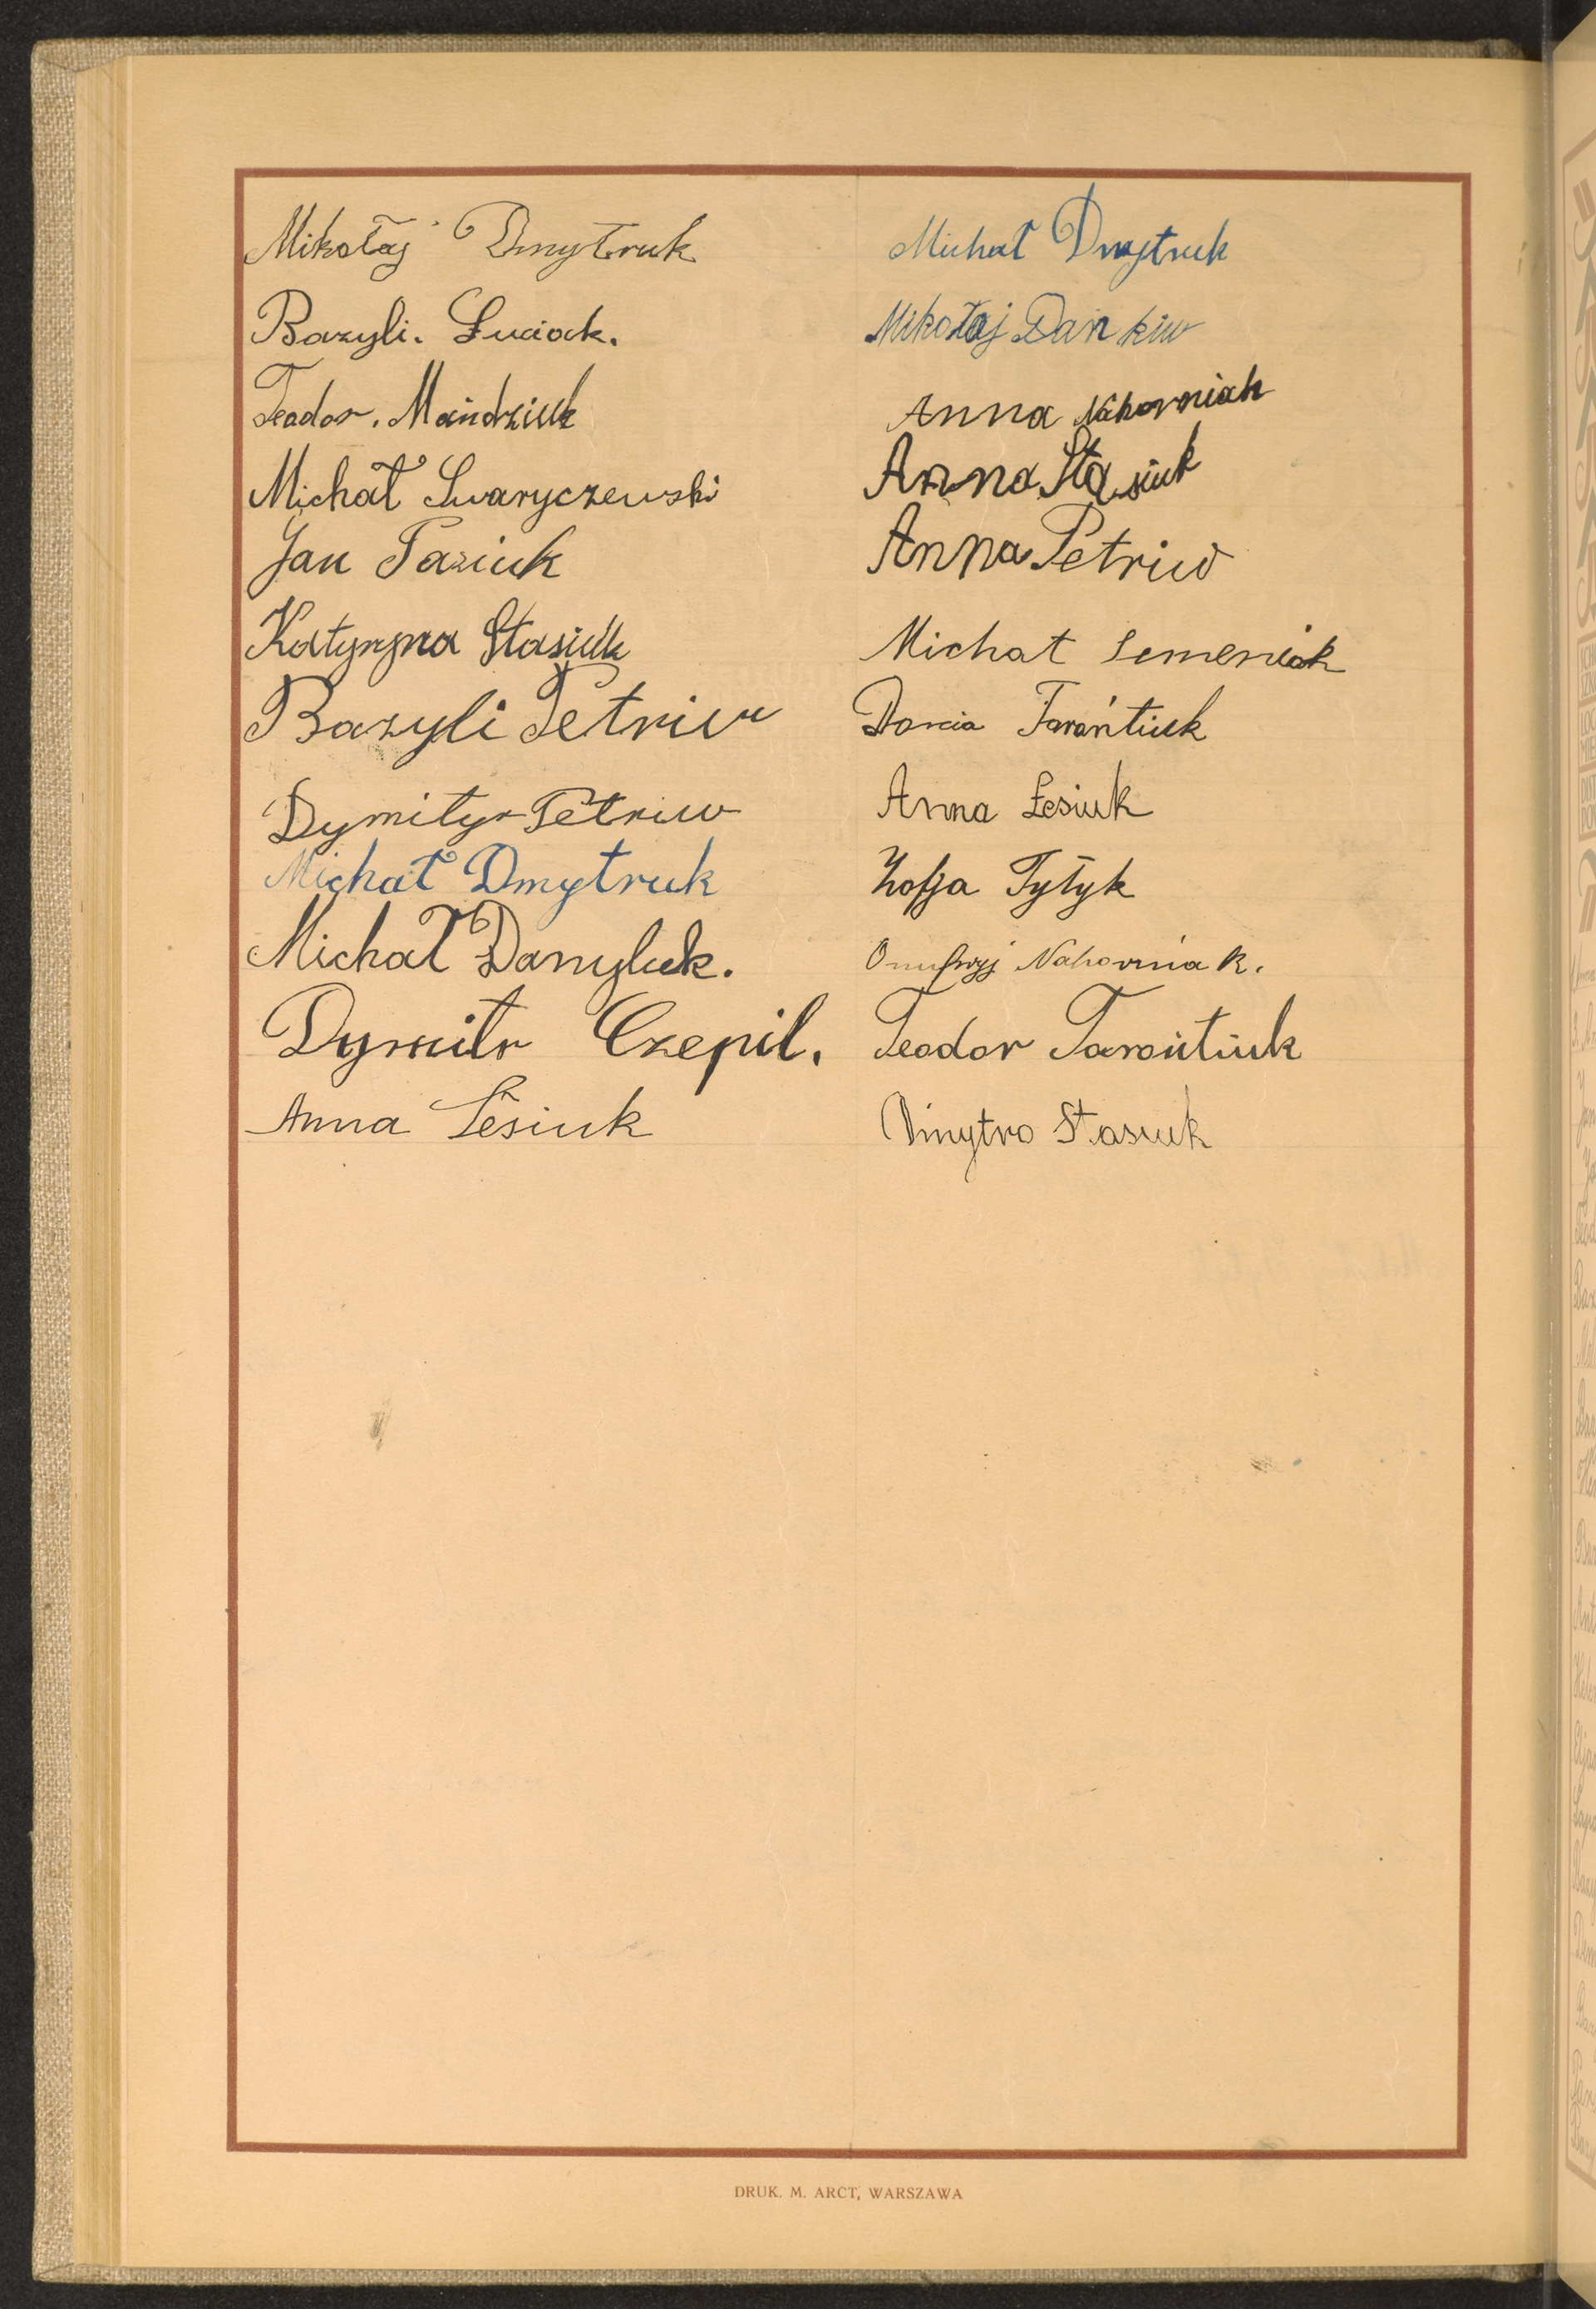 Mikołaj Dmytruk
Bazyli. Łuciack.
Teodor. Mandziuk
Michał Swaryczewski
Jan Pasiuk
Katyryna Stasiuk
Bazyli Petriw
Dymityr Petriw
Michał Dmytruk
Michał Danyluk.
Dymitr Czepil.
Anna Lesiuk
Michał Dmytruk
Mikołaj Dańkiw
Anna Nahorniak
Anna Stasiuk
Anna Petriw
Michat Semeniak
Dorcia Tarantiuk
Anna Łesiuk
Zofja Tytyk
Onufryj Nahorniak.
Teodor Tarantiuk
Dmytro Stasiuk
DRUK. M. ARCT, WARSZAWA